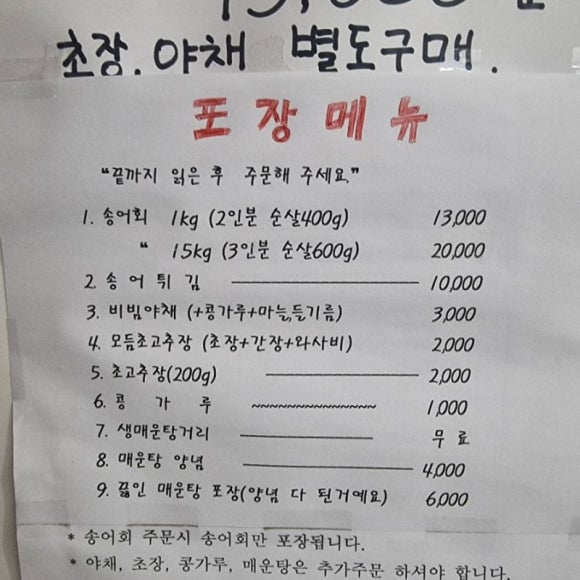 초장. 야채 별도구매.
포장메뉴
"끝까지 읽은 후 주문해 주세요."
1. 송어회 1kg (2인분 순살400g) 13,000
" 15kg (3인분 순살600g) 20,000
2. 송어튀김 10,000
3. 비빔야채 (+콩가루+마늘,들기름) 3,000
4. 모듬초고추장 (초장+간장+와사비) 2,000
5. 초고추장(200g) 2,000
6. 콩가루 ~~~~~~~~~~~~~~ 1,000
7. 생매운탕거리 무료
8. 매운탕 양념 4,000
9. 끓인 매운탕 포장(양념 다 된거예요) 6,000
* 송어회 주문시 송어회만 포장됩니다.
* 야채, 초장, 콩가루, 매운탕은 추가주문 하셔야 합니다.